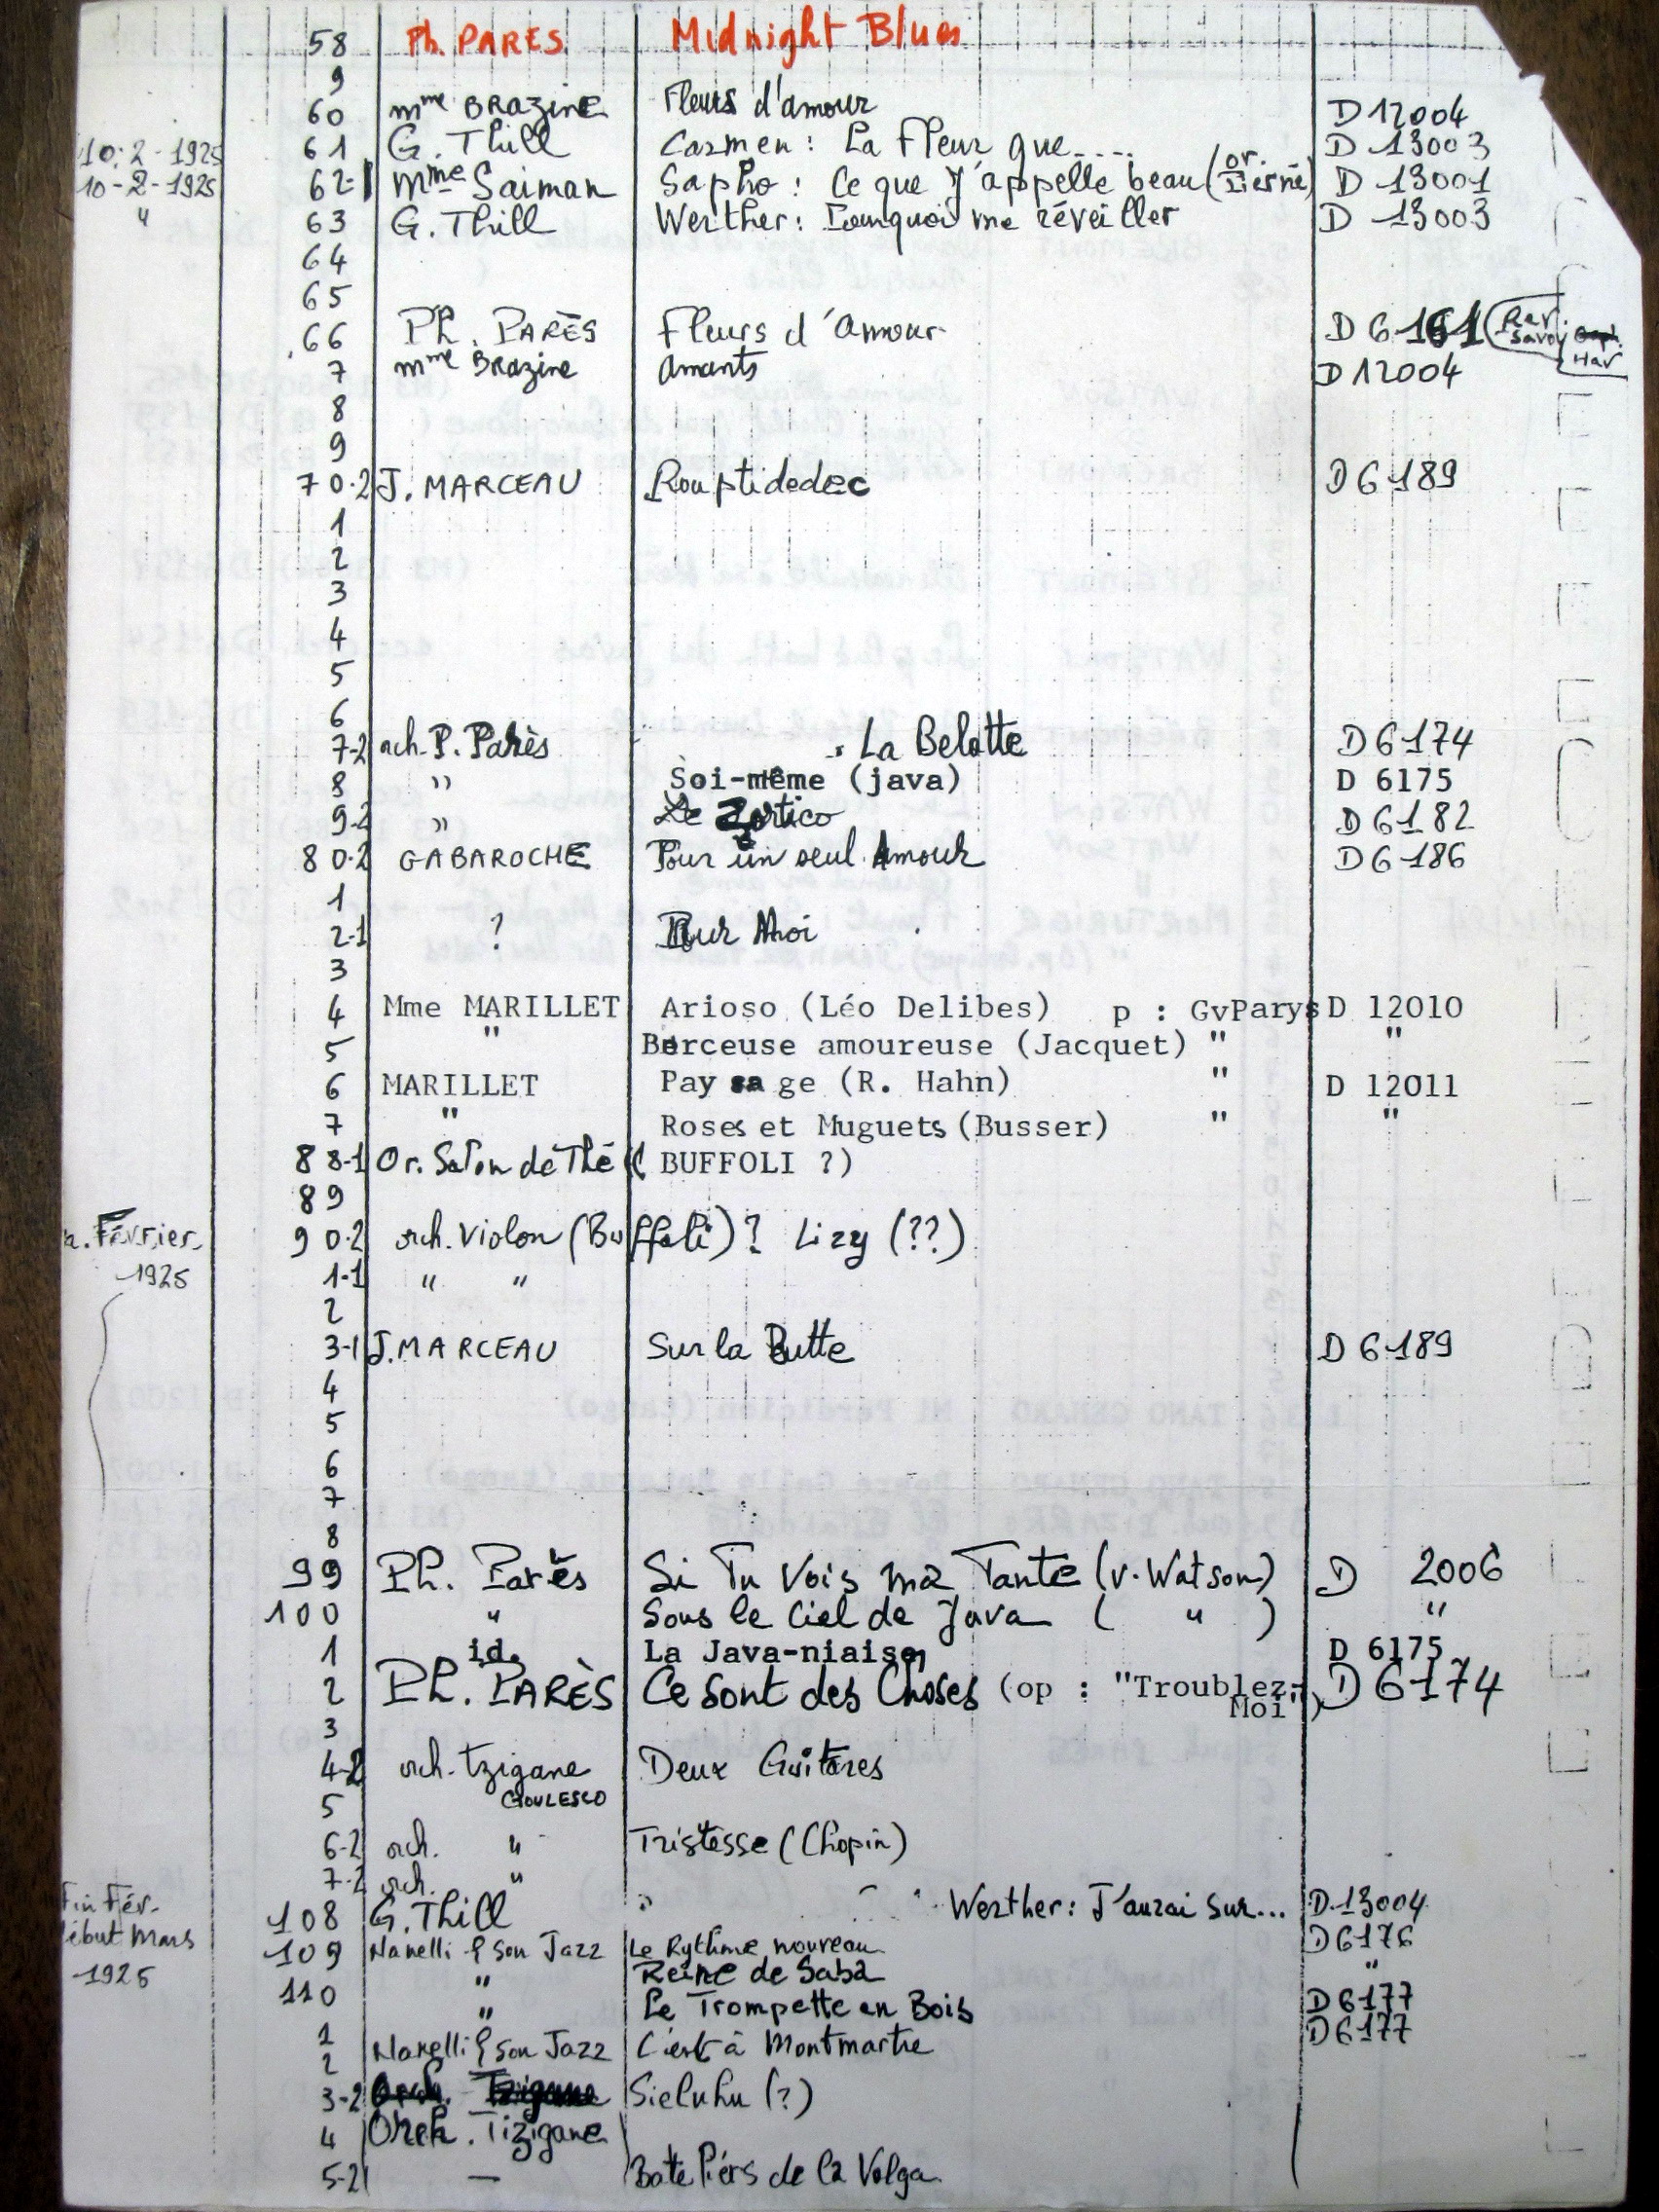 58 Ph. PARES. Midnight Blues
9
60 Mme BRAZINE Fleurs d'amour D 12004
10-2-1925 61 G. Thill Carmen : La Fleur que.... D 13003
10-2-1925 62-1 Mme Saiman Sapho : Ce que j'appelle beau (or. Pierné) D 13001
" 63 G. Thill Werther : Pourquoi me réveiller D 13003
64
65
66 Ph. PARÈS Fleurs d'Amour D 6161
7 Mme Brazine Amants D 12004
8
9
70-2 J. MARCEAU Rouptidedec D 6189
1
2
3
4
5
6
7-2 orch. P. Parès La Belotte D 6174
8 " Soi-même (java) D 6175
9-2 " Le D 6182
80-2 GABAROCHE Pour un seul Amour D 6186
1
2-1 ? Pour Moi
3
4 Mme MARILLET Arioso (Léo Delibes) p : GvParys D 12010
5 " Berceuse amoureuse (Jacquet) " "
6 MARILLET Paysage (R. Hahn) " D 12011
7 " Roses et Muguets (Busser) " "
88-1 Or. Salon de Thé (( BUFFOLI ?)
89
a. Février 90-2 orch. Violon (Buffoli) ? Lizy (??)
1925 1-1 " "
2
3-1 J. MARCEAU Sur la Butte D 6189
4
5
6
7
8
99 Ph. Parès Si Tu Vois ma Tante (v. Watson) D 2006
100 " Sous le Ciel de Java ( " ) "
1 id. La Java-niaise D 6175
2 Ph. PARÈS Ce sont des Choses (op : "Troublez-Moi") D 6174
3
4-2 orch. tzigane Deux Guitares
5 GOULESCO
6-2 orch. " Tristesse (Chopin)
7-2 orch. "
Fin Fév. 108 G. Thill " Werther : J'aurai sur... D.13004
début Mars 109 Nanelli & son Jazz Le Rythme nouveau D 6176
1925 " Reine de Saba "
110 " Le Trompette en Bois D 6177
1 Nanelli & son Jazz C'est à Montmartre D 6177
2
3-2 Orch. Tzigane Sieluhu (?)
4 Orch. Tizigane
5-2 — Bateliers de la Volga